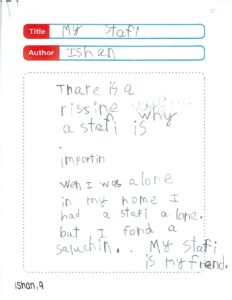 Title My Stafi
Author Ishan
Thare is a
rissine why
a stafi is
.
importin
Wen I was alone
in my home I
had a stafi a lone.
but I fond a
saluchin.. My stafi
is my frend.
Ishan, 9